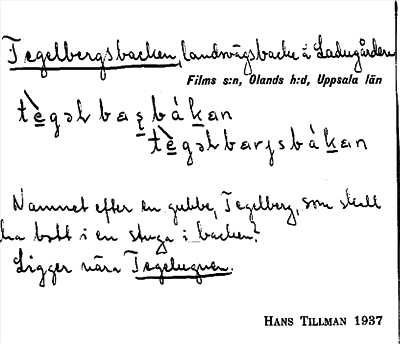 Tegelbergsbacken, landsvägsbacke å Ladugården
Films s:n, Olands h:d, Uppsala län
tè̱gəƚbaʂbá̱kan
tè̱gəƚbarjsbá̱kan
Namnet efter en gubbe, Tegelberg, som skall
ha bott i en stuga i backen.
Ligger nära Tegelugnen.
HANS TILLMAN 1937